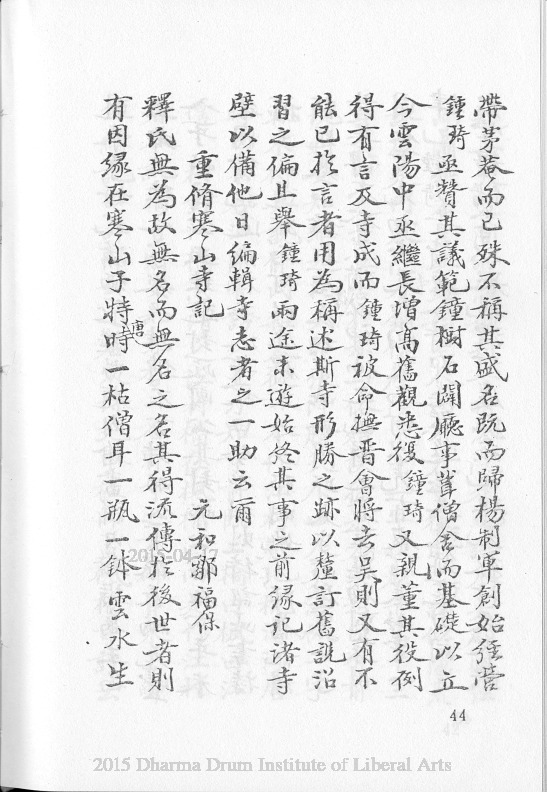 帶茅菴而已殊不稱其盛名既而歸楊制軍創始經營
鍾琦亟贊其議範鐘樹石闢廳事葺僧舍而基礎以立
今雲陽中丞繼長增高舊觀悉復鍾琦又親董其役例
得有言及寺成而鍾琦被命撫晋會將去吳則又有不
能已於言者用為稱述斯寺形勝之跡以釐訂舊說沿
習之偏且舉鍾琦兩途未遊始終其事之前緣記諸寺
壁以備他日編輯寺志者之一助云爾
重脩寒山寺記
元和鄒福保
釋氏無為故無名而無名之名其得流傳於後世者則
有因緣在寒山子特唐時一枯僧耳一瓶一鉢雲水生
44
2015-04-17
2015 Dharma Drum Institute of Liberal Arts